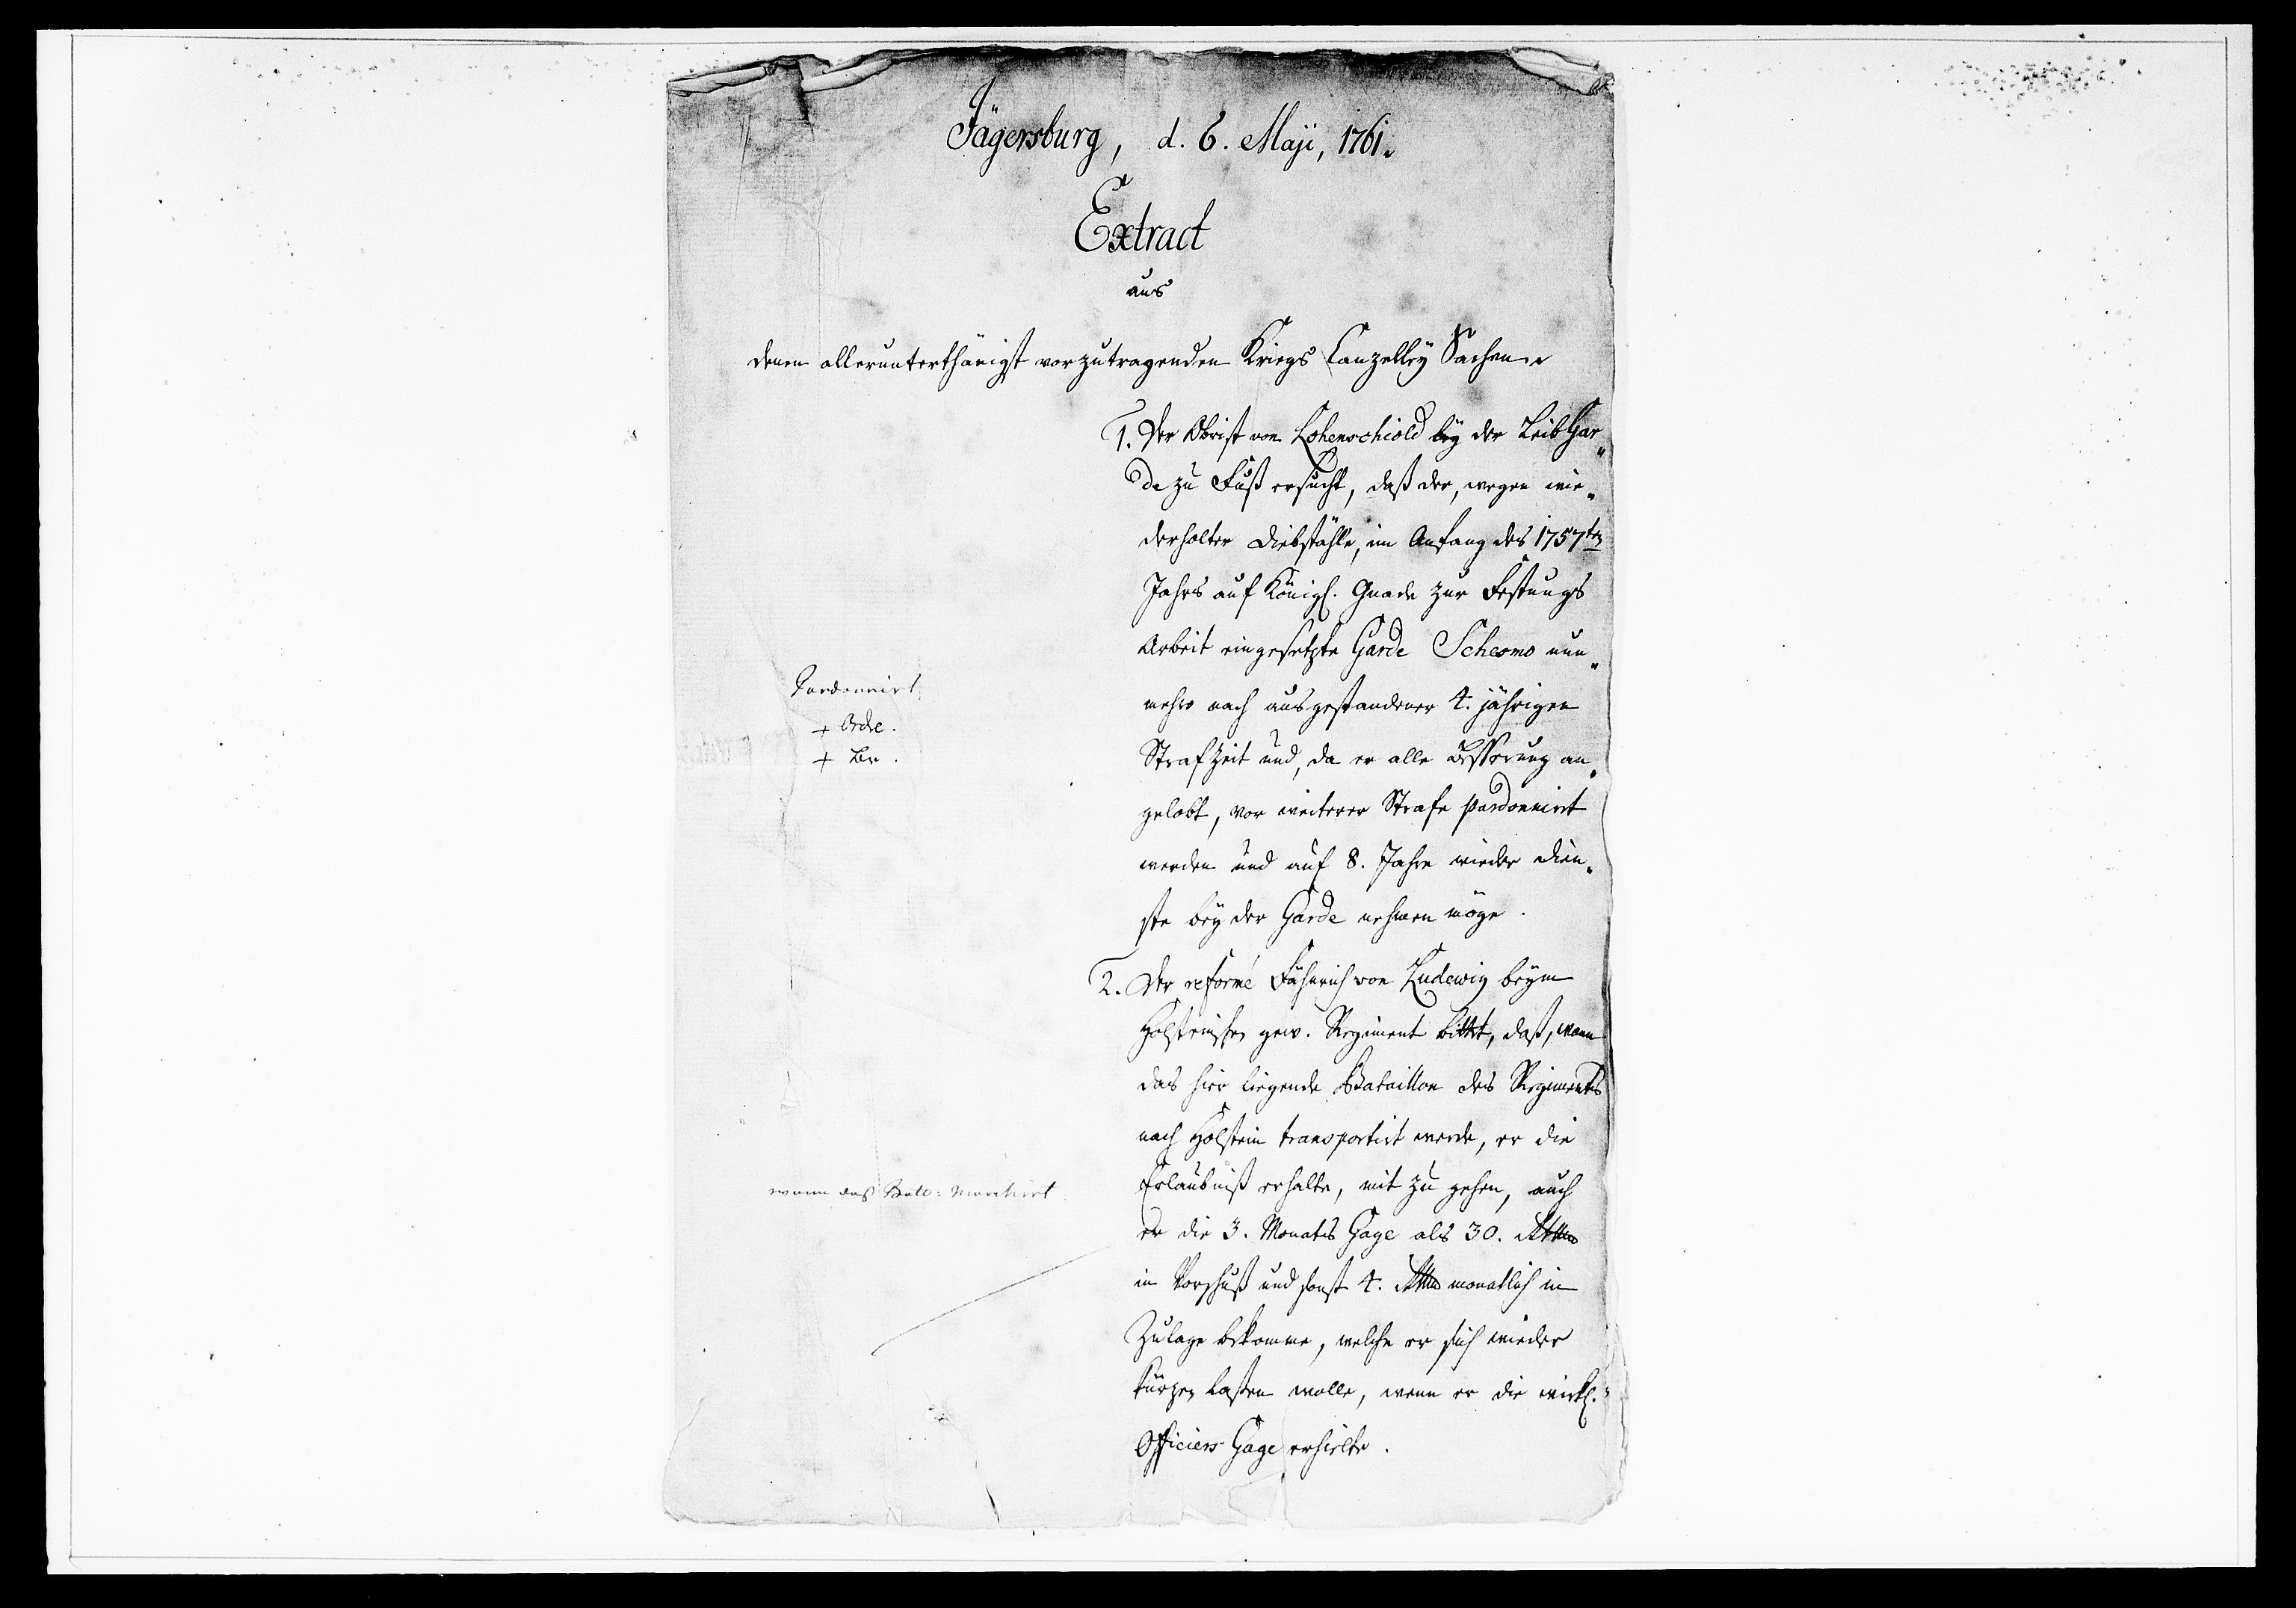 Jägersburg, d. 6. Maji, 1761.
Extract
aus
denen allerunterthänigst vorzutragenden Kriegs Canzelley Sachen.
1. Der Obrist von Lohenschiold bey der LeibGar„
de zu Fuß ersucht, daß der, wegen wie„
derholter Diebstähle, im Anfang des 1757ten
Jahrs auf Königl. Gnade zur Festungs
Arbeit eingesetzte Garde Schesmo nun„
mehro nach ausgestandener 4. jährigen
StrafZeit und, da er alle Besserung an„
gelobt, von weiterer Strafe pardonnirt
werden und auf 8. Jahre wieder Dien„
ste bey der Garde nehmen möge.
Pardonnirt
+ Ordre.
+ Br.
2. Der reformé Fähnrich von Ludewig beym
Holsteinschen gew. Regiment bittet, daß, wann
das hier liegende Bataillon des Regiments
nach Holstein transportirt werde, er die
Erlaubniß erhalte, mit zu gehen, auch
er die 3. Monats Gage als 30. Rthlr
in Vorschuß und sonst 4. Rthlr monatlich in
Zulage bekomme, welche er sich wieder
kürzen laßen wolle, wenn er die wirkl.
Officiers-Gage erhielte.
wann das Bata: Marchirt